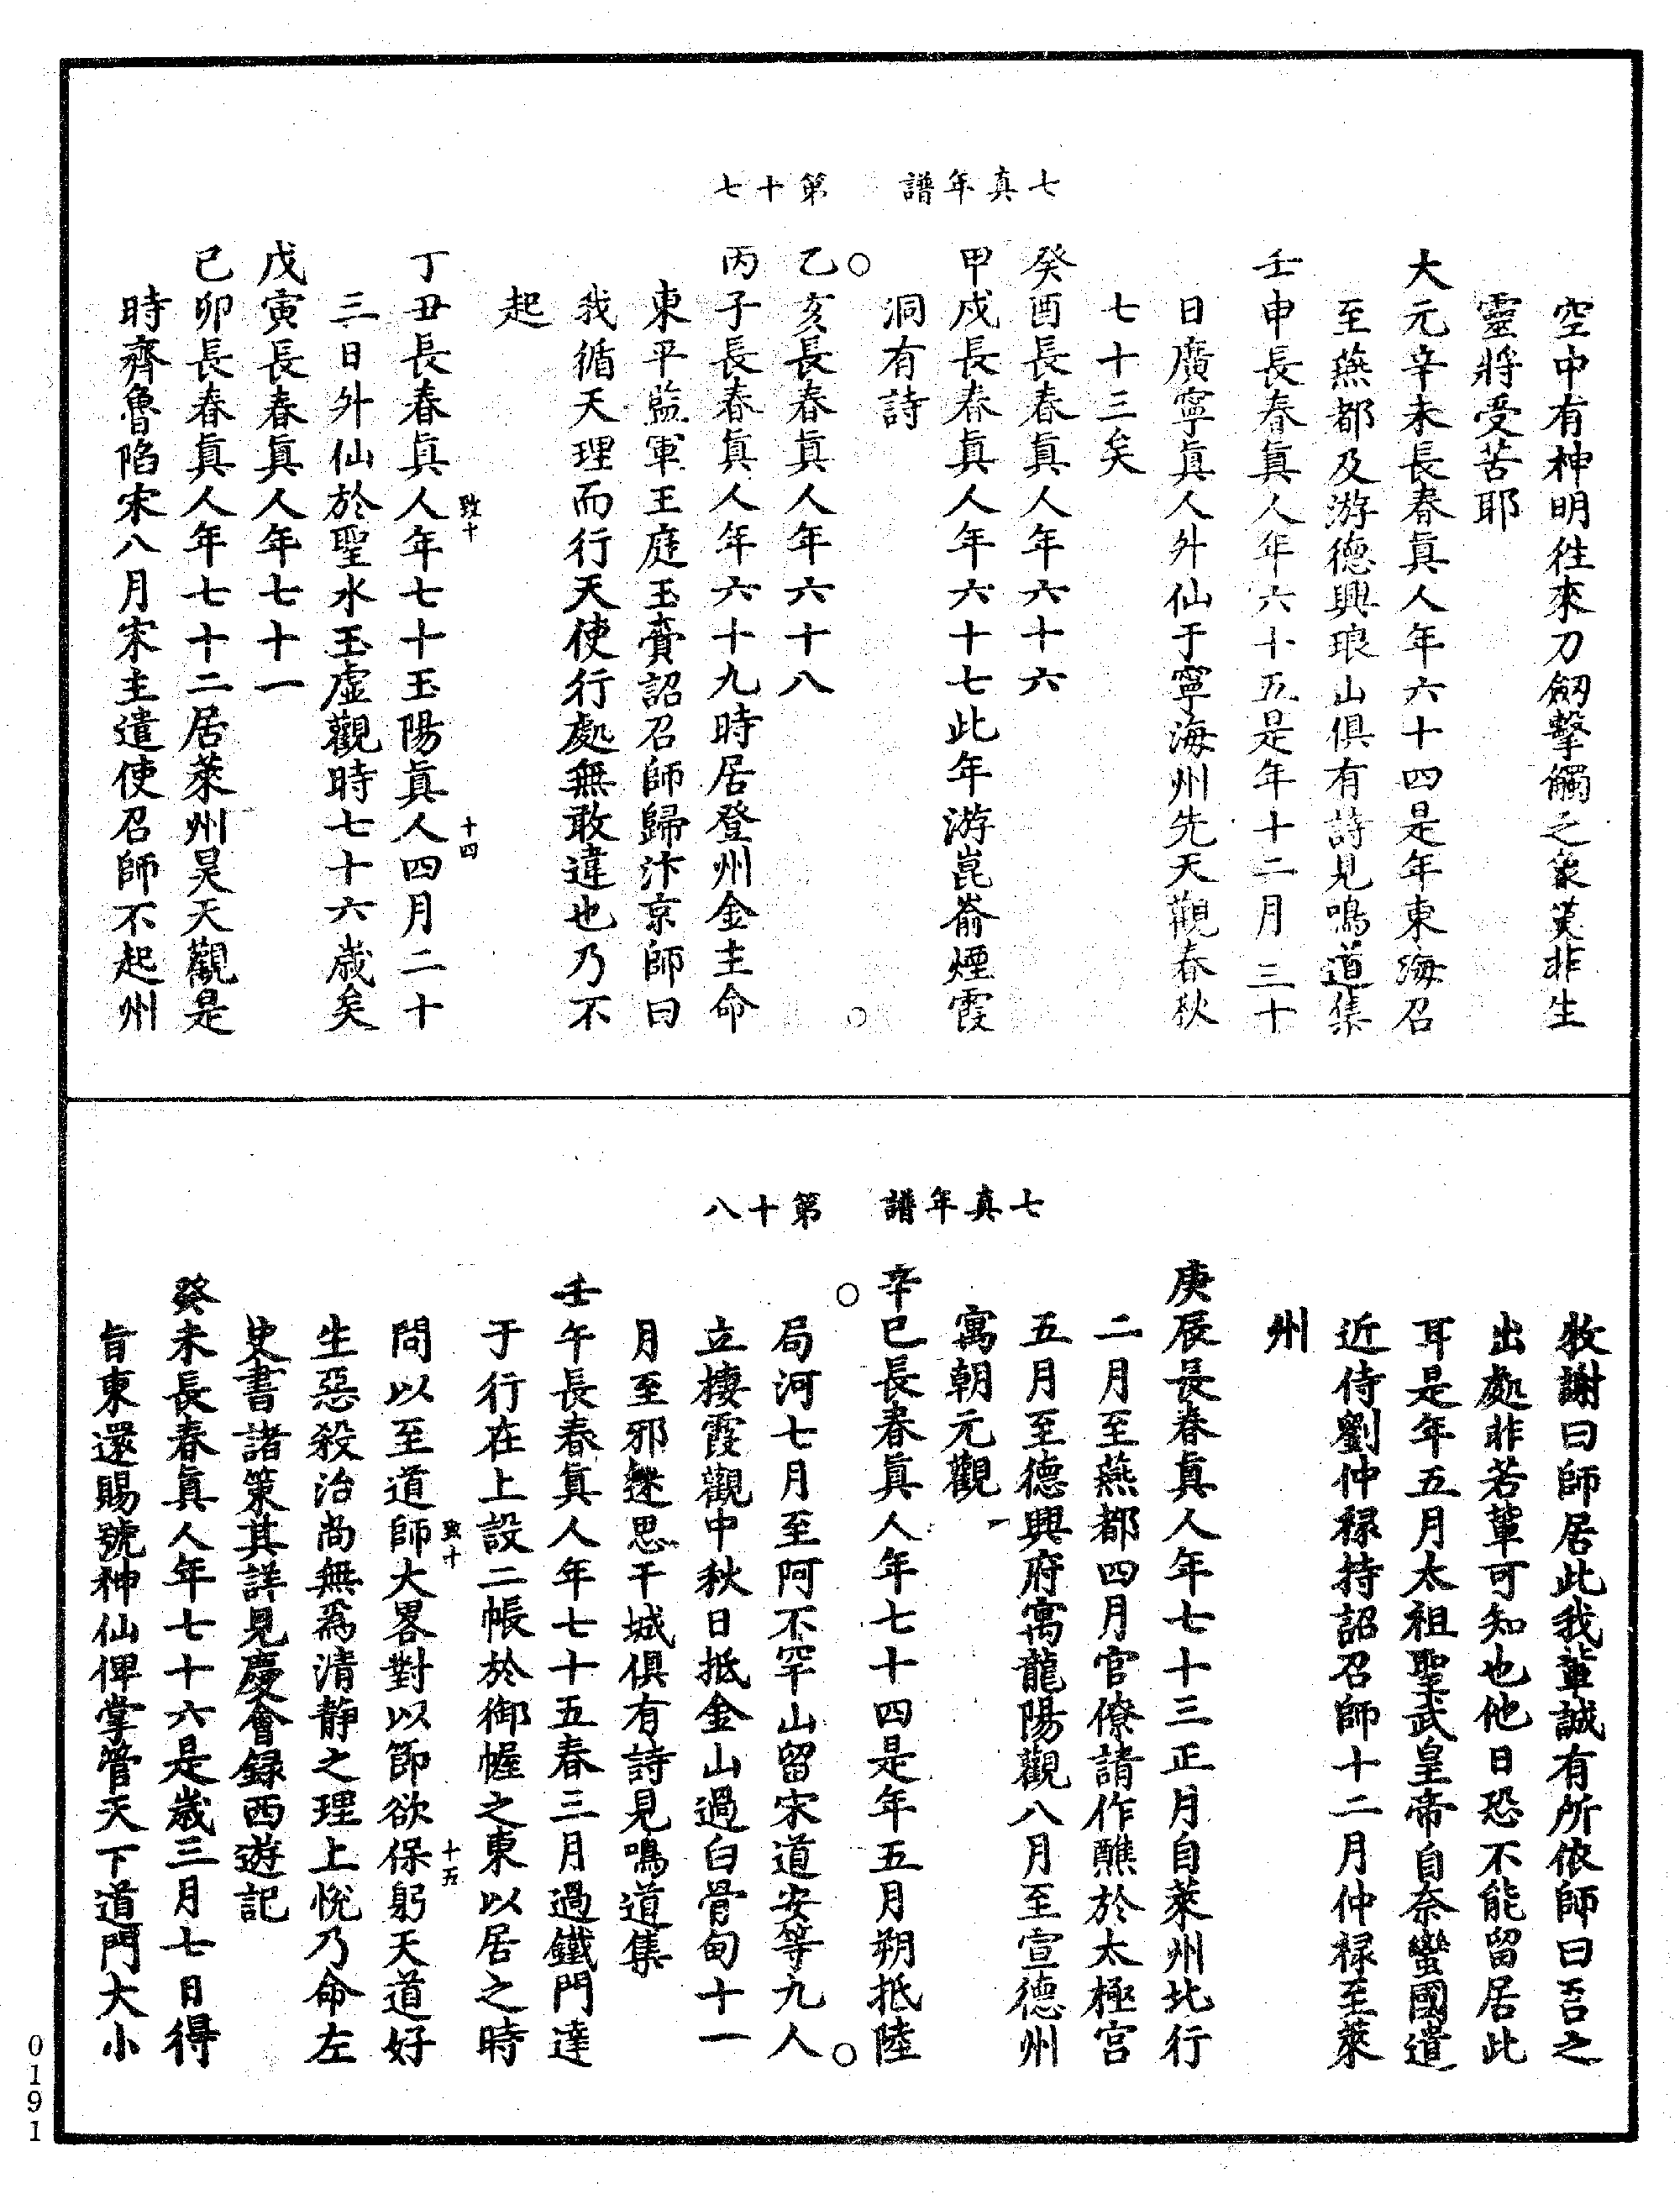 七真年譜　第十七
空中有神明徃來刀劒擊觸之象莫非生
靈將受苦耶
大元辛未長春眞人年六十四是年東海召
至燕都及游德興琅山俱有詩見鳴道集
壬申長春眞人年六十五是年十二月三十
日廣寧眞人外仙于寧海州先天觀春秋
七十三矣
癸酉長春眞人年六十六
甲戍長春眞人年六十七此年游崑嵛煙霞
洞有詩
乙亥長春眞人年六十八
丙子長春眞人年六十九時居登州金主命
東平監軍王庭玉賫詔召師歸汴京師曰
我循天理而行天使行處無敢違也乃不
起
致十
十四
丁丑長春眞人年七十玉陽眞人四月二十
三日外仙於聖水玉虛觀時七十六歲矣
戊寅長春眞人年七十一
己卯長春眞人年七十二居萊州昊天觀是
時齊魯陷宋八月宋主遣使召師不起州
七真年譜　第十八
牧謝曰師居此我輩誠有所依師曰吾之
出處非若輩可知也他日恐不能留居此
耳是年五月太祖聖武皇帝自奈蠻國遣
近侍劉仲祿持詔召師十二月仲祿至萊
州
庚辰長春真人年七十三正月自萊州北行
二月至燕都四月官僚請作醮於太極宮
五月至德興府寓龍陽觀八月至宣德州
寓朝元觀
辛巳長春眞人年七十四是年五月朔抵陸
局河七月至阿不罕山留宋道安等九人
立棲霞觀中秋日抵金山過白骨甸十一
月至邪迷思干城俱有詩見鳴道集
壬午長春眞人年七十五春三月過鐵門達
于行在上設二帳於御幄之東以居之時
致十
十五
問以至道師大畧對以節欲保躬天道好
生惡殺治尚無爲清靜之理上悅乃命左
史書諸策其詳見慶會録西遊記
癸未長春眞人年七十六是歲三月七日得
旨東還賜號神仙俾掌管天下道門大小
0191